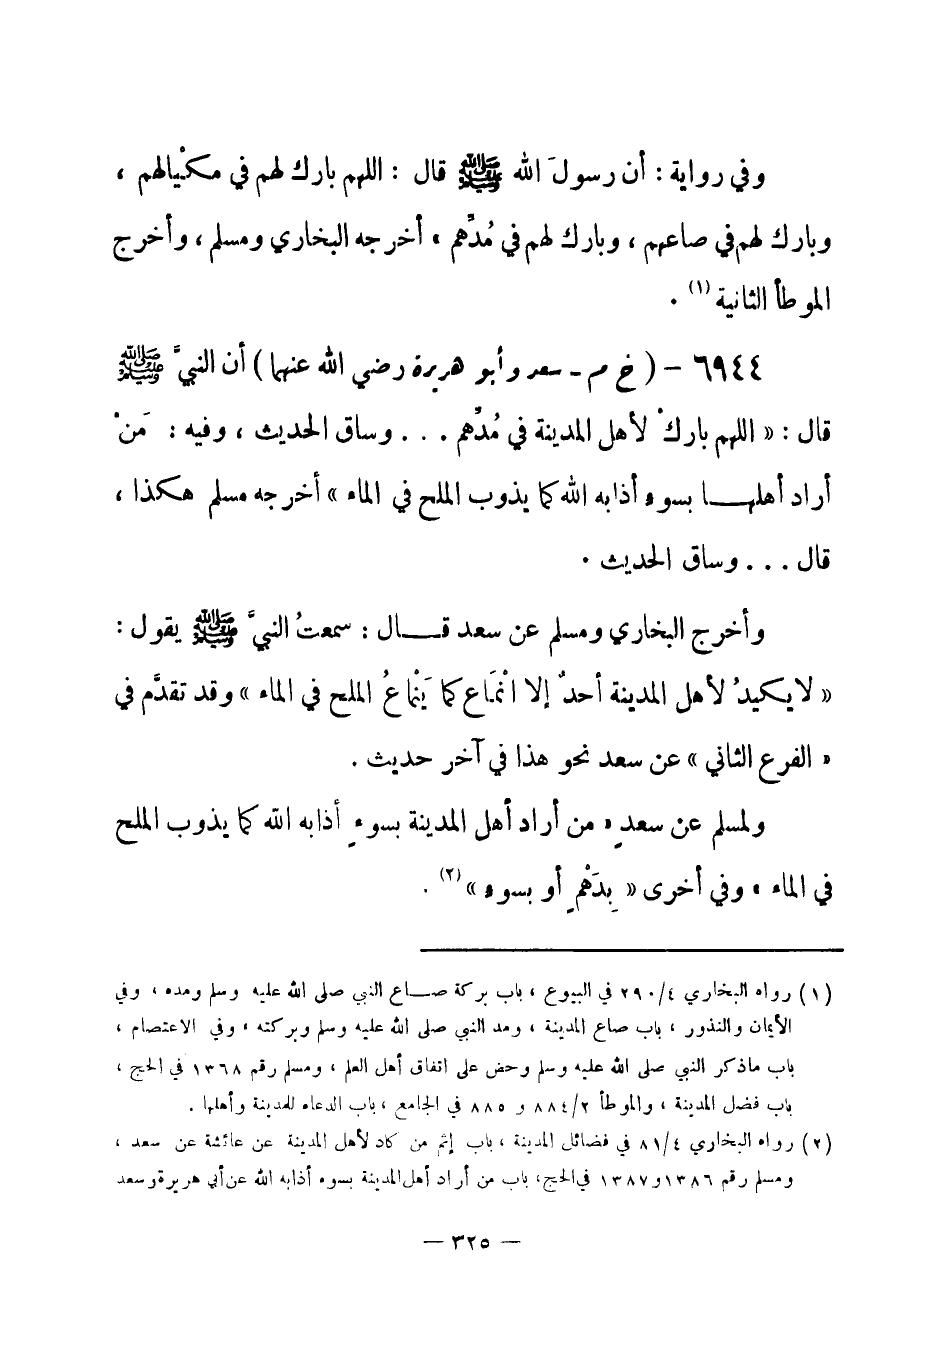 وفي رواية : أن رسولَ الله ﷺ قال : اللهم بارك لهم في مكْيالهم ،
وبارك لهم في صاعهم ، وبارك لهم في مُدِّهم » أخرجه البخاري ومسلم ، وأخرج
الموطأ الثانية (١) .
٦٩٤٤ – ( خ م - سعد وأبو هريرة رضي الله عنهما ) أن النبيَّ ﷺ
قال : « اللهم باركْ لأهل المدينة في مُدِّهم . . . وساق الحديث ، وفيه : مَنْ
أراد أهلهـــا بسوء أذابه الله كما يذوب الملح في الماء » أخرجه مسلم هكذا ،
قال . . . وساق الحديث .
وأخرج البخاري ومسلم عن سعد قــال : سمعتُ النبيَّ ﷺ يقول :
« لا يكيدُ لأهل المدينة أحدٌ إلا انْمَاع كما يَنْماعُ الملح في الماء » وقد تقدَّم في
« الفرع الثاني » عن سعد نحو هذا في آخر حديث .
ولمسلم عن سعدٍ « من أراد أهل المدينة بسوءٍ أذابه الله كما يذوب الملح
في الماء » وفي أخرى « بِدَهْمٍ أو بسوء » (٢) .
(١) رواه البخاري ٢٩٠/٤ في البيوع ، باب بركة صـاع النبي صلى الله عليه وسلم ومده ، وفي
الأيمان والنذور ، باب صاع المدينة ، ومد النبي صلى الله عليه وسلم وبركته ، وفي الاعتصام ،
باب ماذكر النبي صلى الله عليه وسلم وحض على اتفاق أهل العلم ، ومسلم رقم ١٣٦٨ في الحج ،
باب فضل المدينة ، والموطأ ٨٨٤/٢ و ٨٨٥ في الجامع ، باب الدعاء للمدينة وأهلها .
(٢) رواه البخاري ٨١/٤ في فضائل المدينة ، باب إثم من كاد لأهل المدينة عن عائشة عن سعد ،
ومسلم رقم ١٣٨٦ و ١٣٨٧ في الحج ، باب من أراد أهل المدينة بسوء أذابه الله عن أبي هريرة وسعد
— ٣٢٥ —